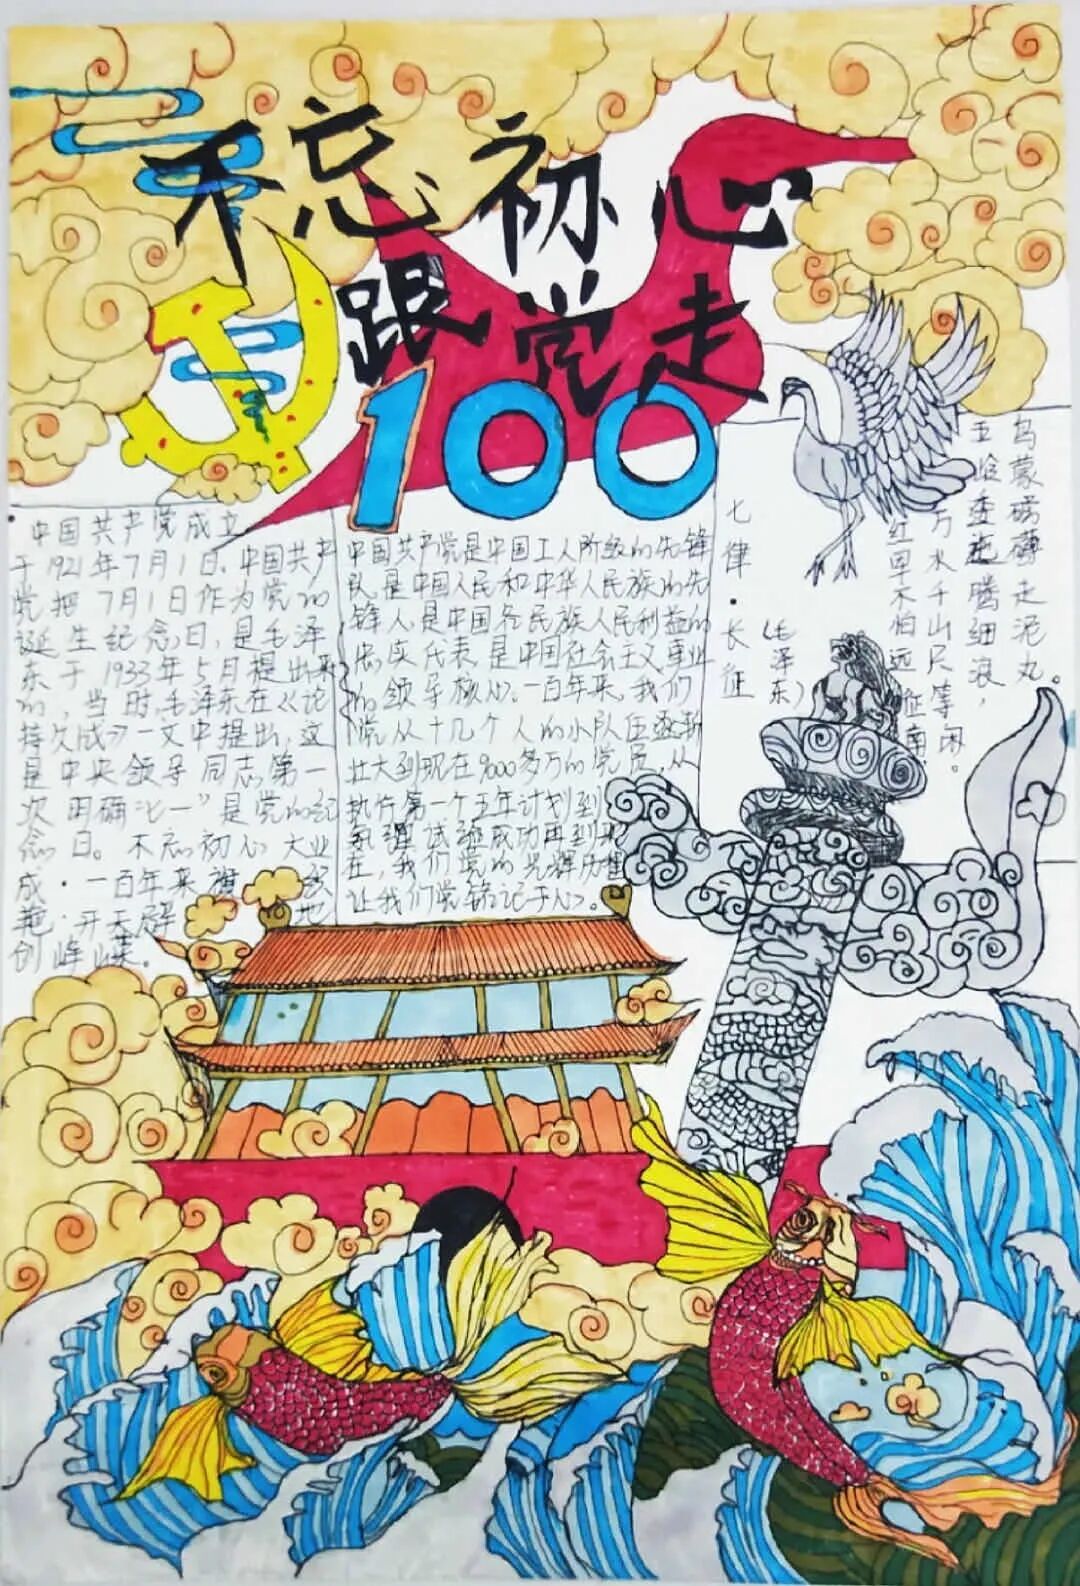 不忘初心
跟党走
100
中国共产党成立
于1921年7月1日、中国共产
党把7月1日作为党的
诞生纪念日，是毛泽
东于1933年5月提出来
的，当时，毛泽东在《论
持久战》一文中提出，这
是中央领导同志第一
次明确“七一”是党的纪
念日。不忘初心大业
成·一百年来
艳·开天辟 地
创峰嵘。
中国共产党是中国工人阶级的先锋
队是中国人民和中华人民族的先
锋人，是中国各民族人民利益的
忠实代表是中国社会主义事业
的领导核心。一百年来，我们
党从十几个人的小队伍逐渐
壮大到现在9000多万的党员，从
执行第一个五年计划到
氢弹试验成功再到现
在，我们党的光辉历程
让我们党铭记于心。
七律·长征
（毛泽东）
红军不怕远征南，
万水千山只等闲。
五岭逶迤腾细浪，
乌蒙磅礴走泥丸。